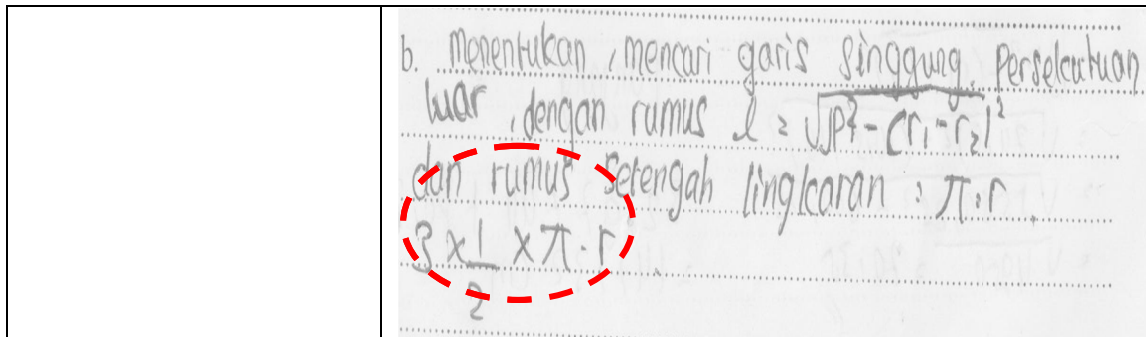 b. menentukan, mencari garis singgung persekutuan
luar, dengan rumus l = √JP² - (r₁-r₂)²
dan rumus setengah lingkaran : π.r
3 × 1/2 × π . r